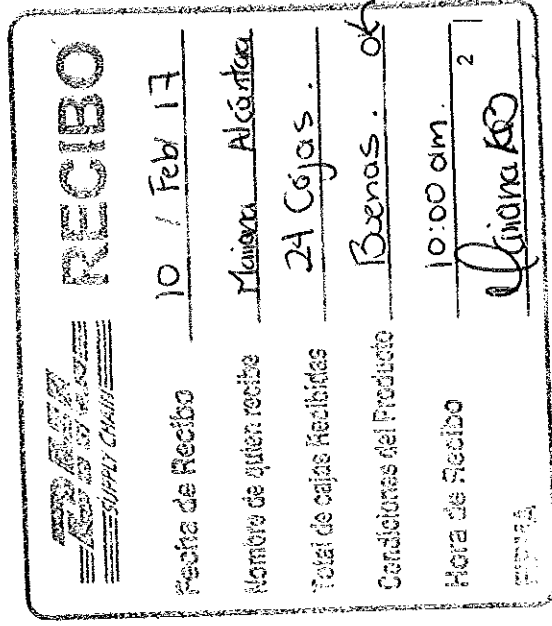 RECIBO
SUPPLY CHAIN
Fecha de Recibo 10 / Feb / 17
Nombre de quien recibe Mariana Alcántara
Total de cajas Recibidas 24 Cajas.
Condiciones del Producto Buenas. ok
Hora de Recibo 10:00 am.
2
FIRMA Mariana